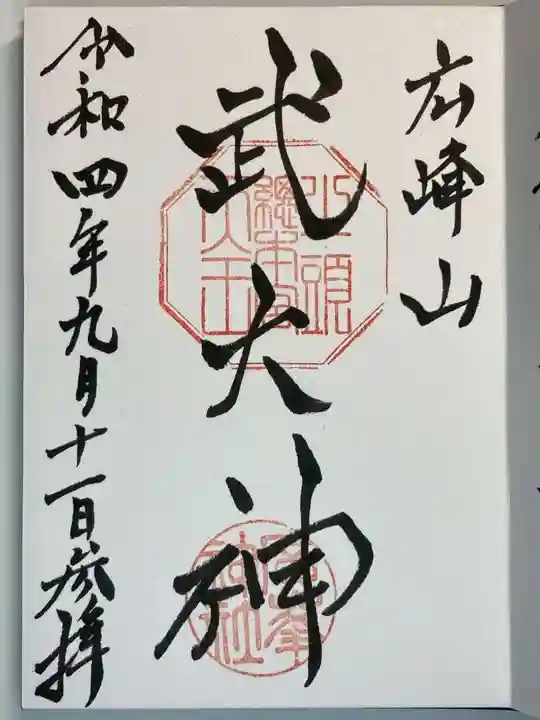 広峰山
武大神
令和四年九月十一日参拝